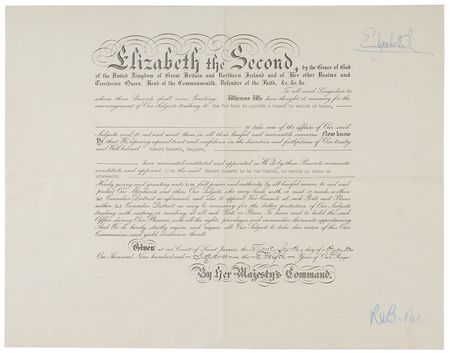 Elizabeth
Elizabeth the Second,
by the Grace of God
of the United Kingdom of Great Britain and Northern Ireland and of Her other Realms and
Territories Queen, Head of the Commonwealth, Defender of the Faith, &c. &c. &c.
To all and Singular to
whom these Presents shall come, Greeting! Whereas We have thought it necessary for the
encouragement of Our Subjects trading to the Far East to appoint a Consul to reside at
to take care of the affairs of Our said
Subjects and to aid and assist them in all their lawful and mercantile concerns Now Know
Ye that We reposing especial trust and confidence in the discretion and faithfulness of Our trusty
and Well-beloved Esquire,
have nominated constituted and appointed as We do by these Presents nominate
constitute and appoint him the said to be Our Consul, to reside at as
aforesaid;
Hereby giving and granting unto him full power and authority by all lawful means to aid and
protect Our Merchants and others Our Subjects who may trade with or visit or reside within
his Consular District as aforesaid, and also to appoint Vice Consuls at such Ports and Places
within his Consular District as may be necessary for the better protection of Our Subjects
trading with visiting or residing at all such Ports or Places To have and to hold this said
Office during Our Pleasure with all the rights privileges and immunities thereunto appertaining
And We do hereby strictly enjoin and require all Our Subjects to take due notice of this Our
Commission, and yield Obedience thereto.
Given at our Court of Saint James's, the day of
One Thousand Nine hundred and in the Year of Our Reign
By Her Majesty's Command.